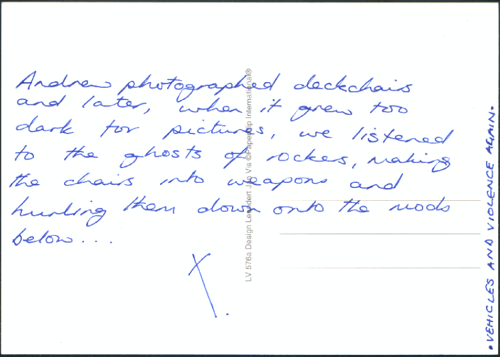 Andrew photographed deckchairs
and later, when it grew too
dark for pictures, we listened
to the ghosts of rockers, making
the chairs into weapons and
hurling them down onto the mods
below...
X.
• VEHICLES AND VIOLENCE AGAIN.
LV 576a Design Leendert J.C. Vis © Paperclip International®